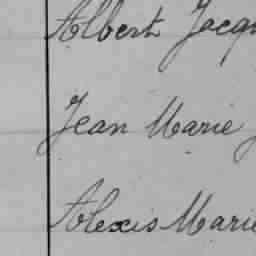 Albert Jacq
Jean Marie J
Alexis Marie